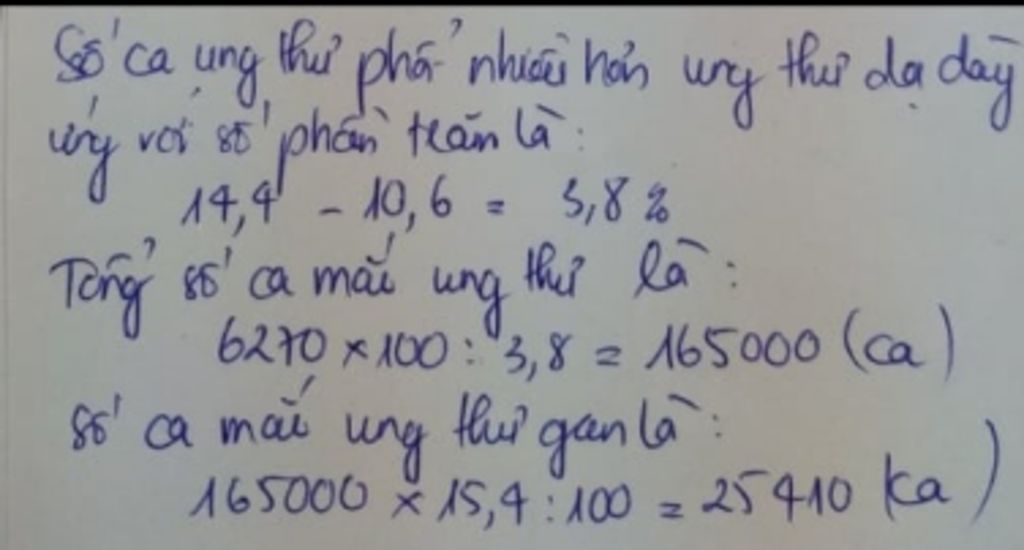 Số ca ung thư phổi nhiều hơn ung thư dạ dày
ứng với số phần trăm là:
14,4 - 10,6 = 3,8%
Tổng số ca mắc ung thư là:
6270 × 100 : 3,8 = 165000 (ca)
Số ca mắc ung thư gan là:
165000 × 15,4 : 100 = 25410 (ca)